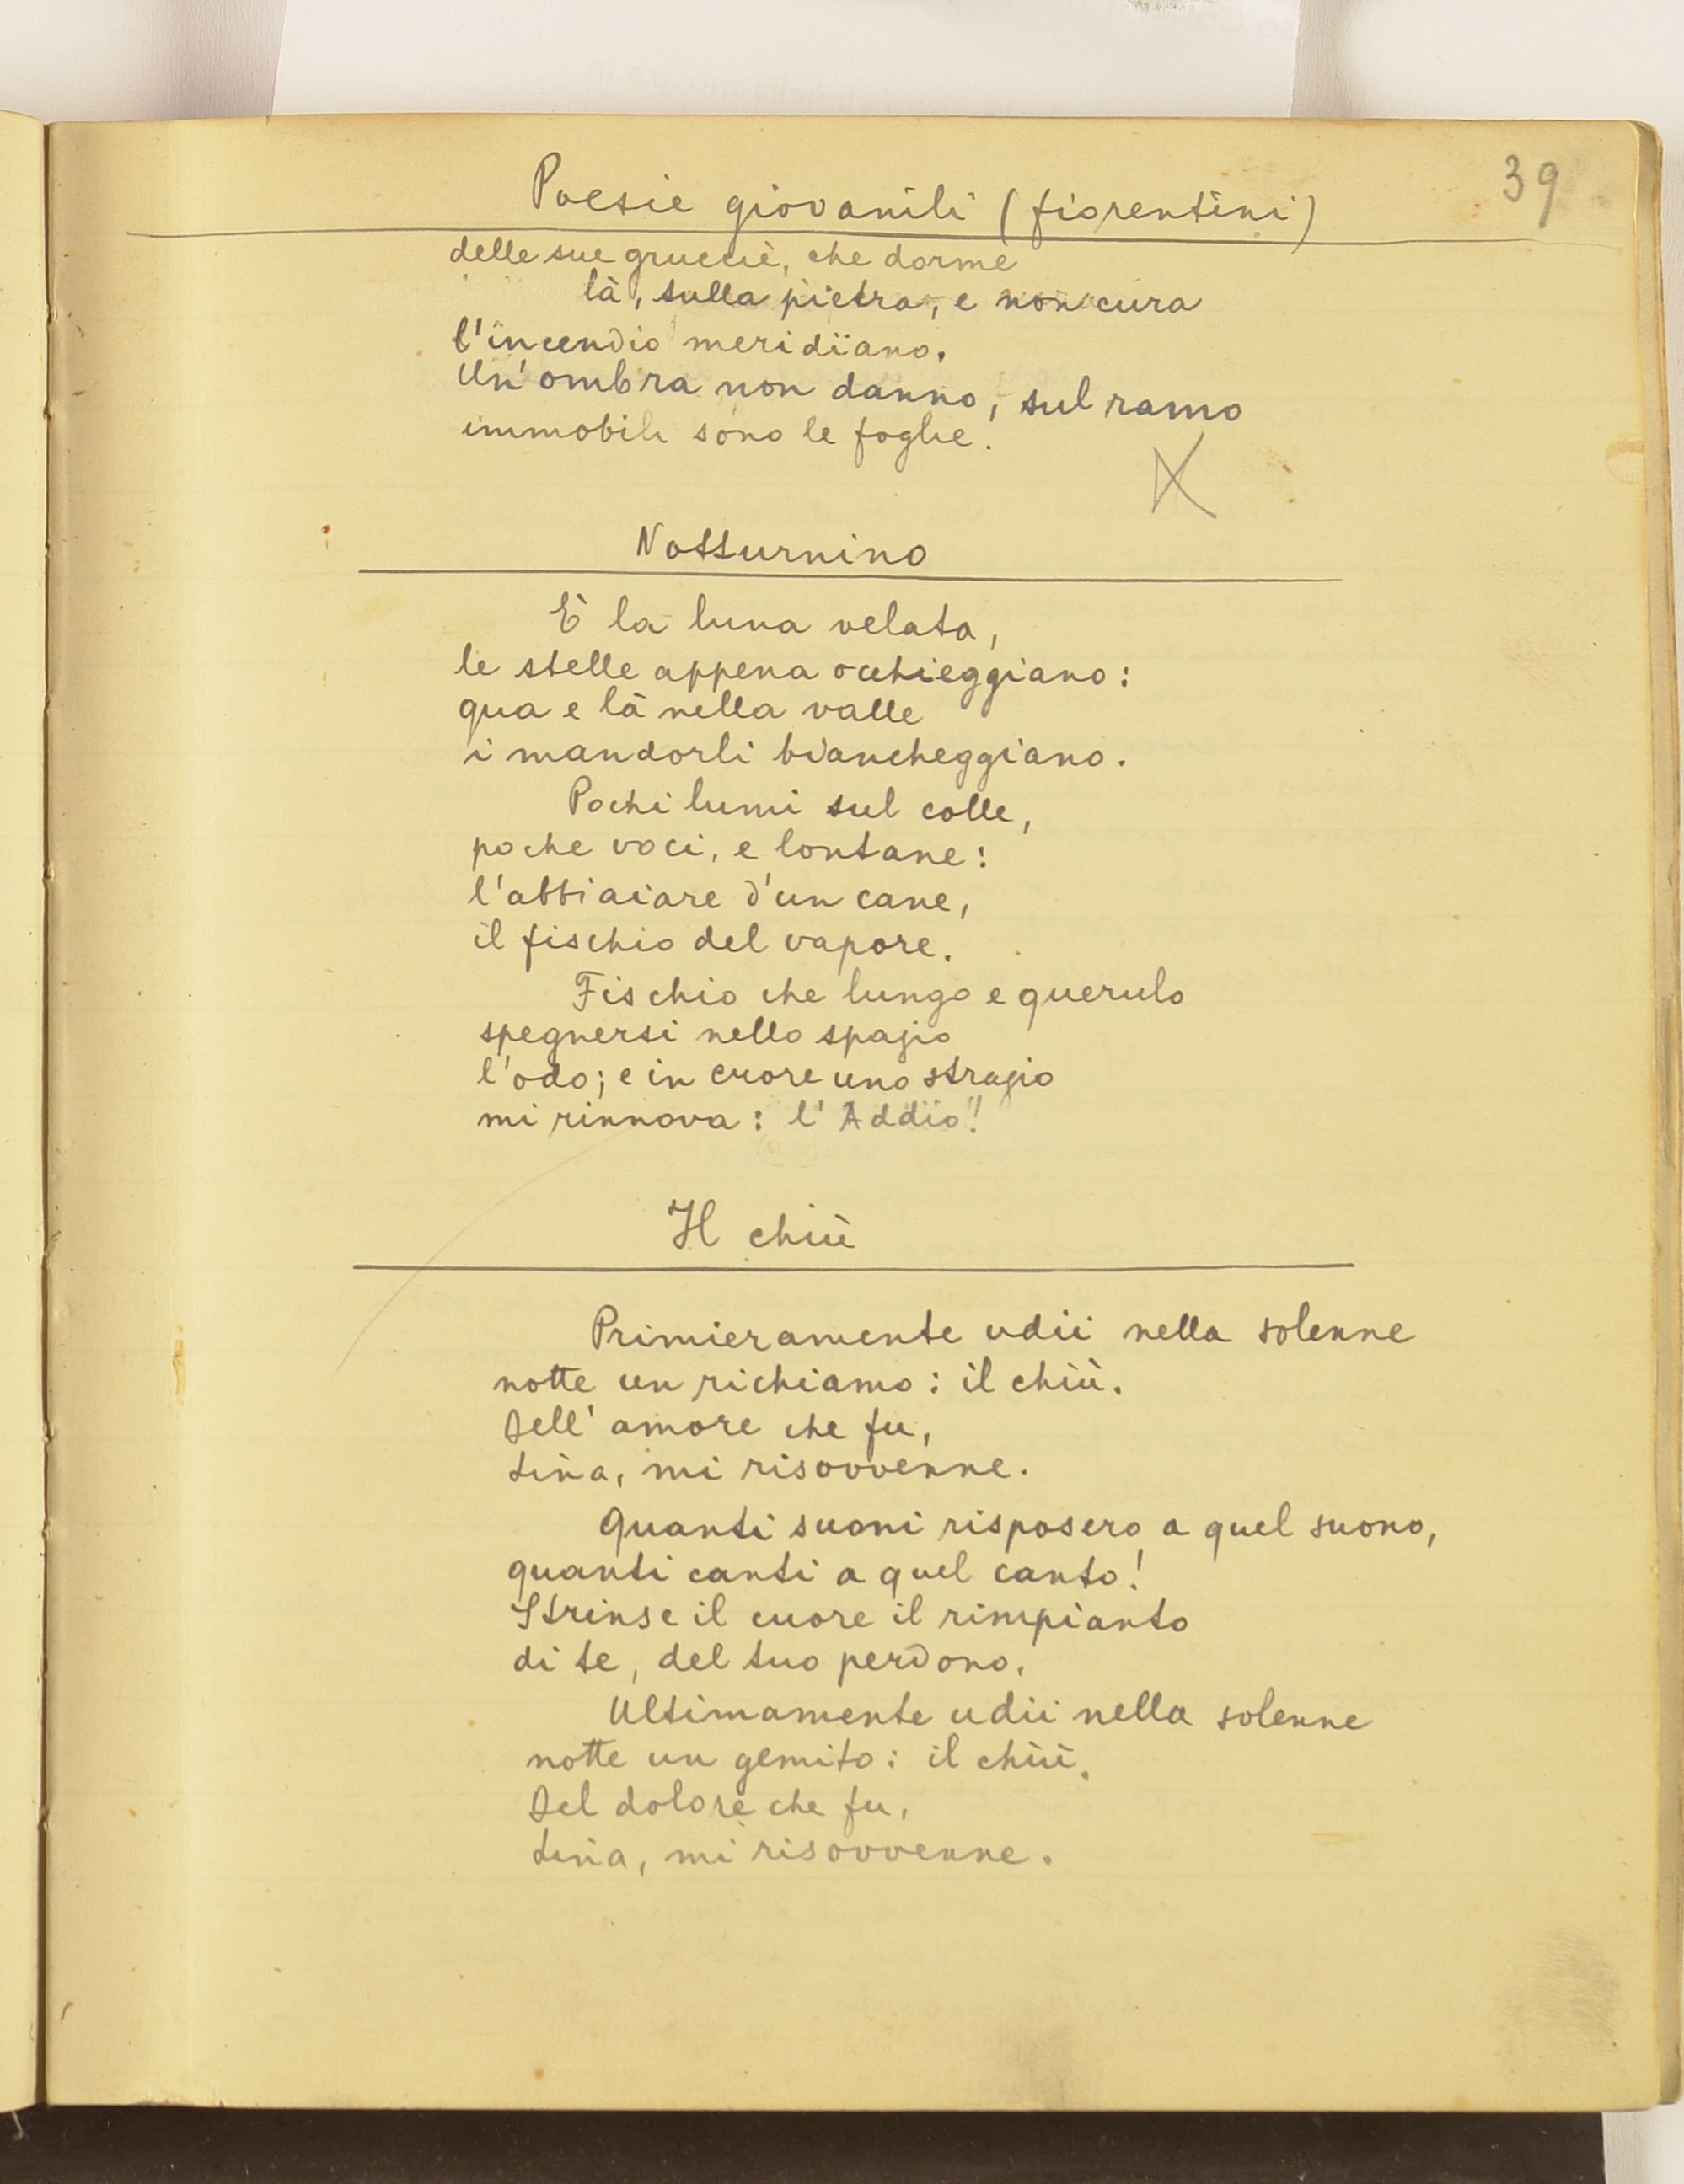 39
Poesie giovanili (fiorentini)
delle sue gruccie, che dorme
là, sulla pietra, e non cura
l'incendio meridïano.
Un'ombra non danno, sul ramo
immobili sono le foglie.
Notturnino
È la luna velata,
le stelle appena occhieggiano:
qua e là nella valle
i mandorli biancheggiano.
Pochi lumi sul colle,
poche voci, e lontane:
l'abbaiare d'un cane,
il fischio del vapore.
Fischio che lungo e querulo
spegnersi nello spazio
l'odo; e in cuore uno strazio
mi rinnova: l'Addio!
Il chiù
Primieramente udii nella solenne
notte un richiamo: il chiù.
Dell'amore che fu,
Lina, mi risovvenne.
Quanti suoni risposero a quel suono,
quanti canti a quel canto!
Strinse il cuore il rimpianto
di te, del tuo perdono.
Ultimamente udii nella solenne
notte un gemito: il chiù.
Del dolore che fu,
Lina, mi risovvenne.